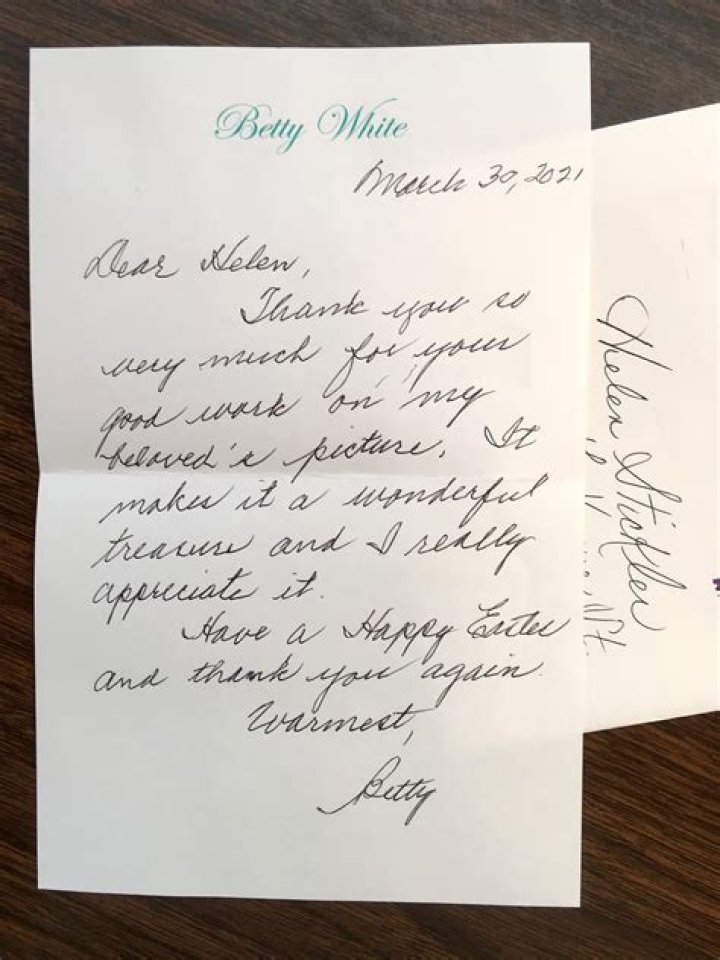 Betty White
March 30, 2021
Dear Helen,
Thank you so
very much for your
good work on my
beloved's picture. It
makes it a wonderful
treasure and I really
appreciate it.
Have a Happy Easter
and thank you again.
Warmest,
Betty
Helen Stickler